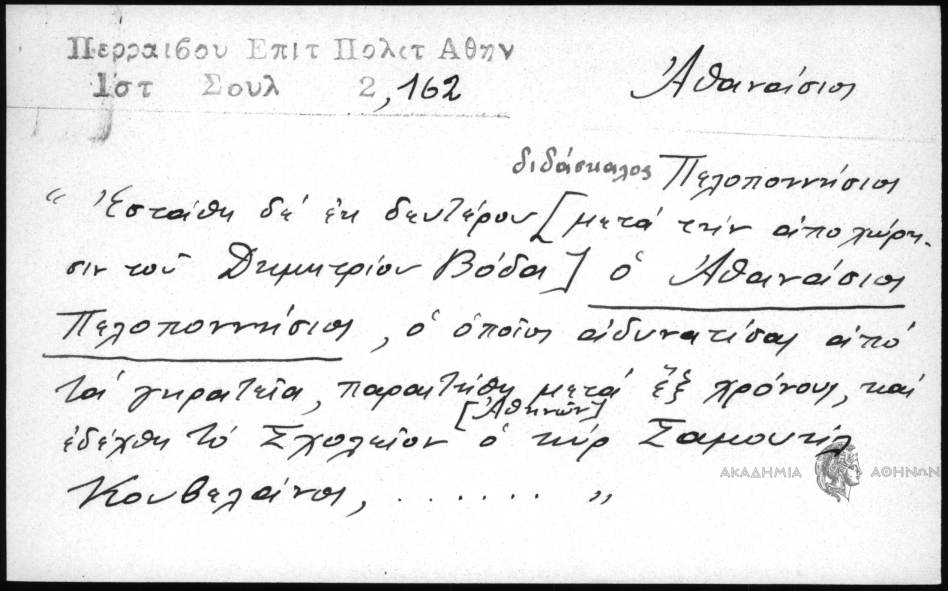 Περραιβου Επιτ Πολιτ Αθην
Ιστ Σουλ 2,162
Ἀθανάσιος
διδάσκαλος Πελοποννήσιος
“ Ἐστάθη δέ ἐκ δευτέρου [μετά τήν ἀποχώρη-
σιν τοῦ Δημητρίου Βόδα] ὁ Ἀθανάσιος
Πελοποννήσιος, ὁ ὁποῖος ἀδυνατίσας ἀπό
τά γηρατεῖα, παραιτήθη μετά ἕξ χρόνους, καί
[Ἀθηνῶν]
ἐδέχθη τό Σχολεῖον ὁ κύρ Σαμουήλ
Κουβελάνος, . . . . . . . ”
ΑΚΑΔΗΜΙΑ ΑΘΗΝΩΝ